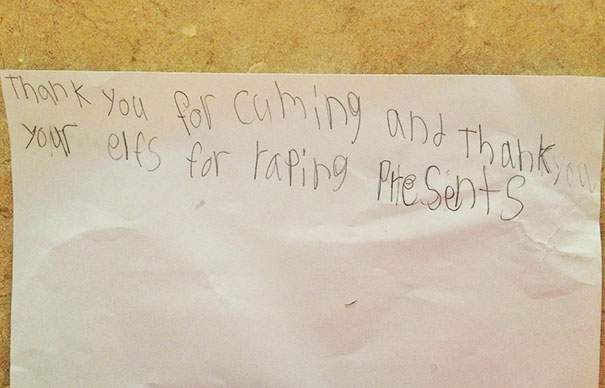 Thank you for cuming and thank you
your elfs for raping presents